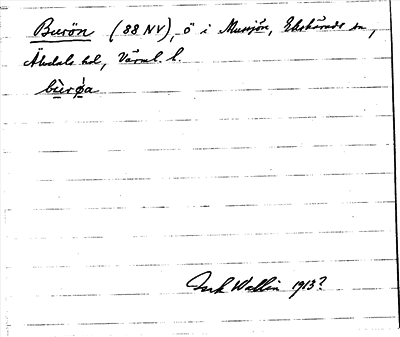 Burön (88 NV), ö i Mussjön, Ekshärads sn,
Älvdals hd, Värml. l.
bùrøa
Wallin 1913?